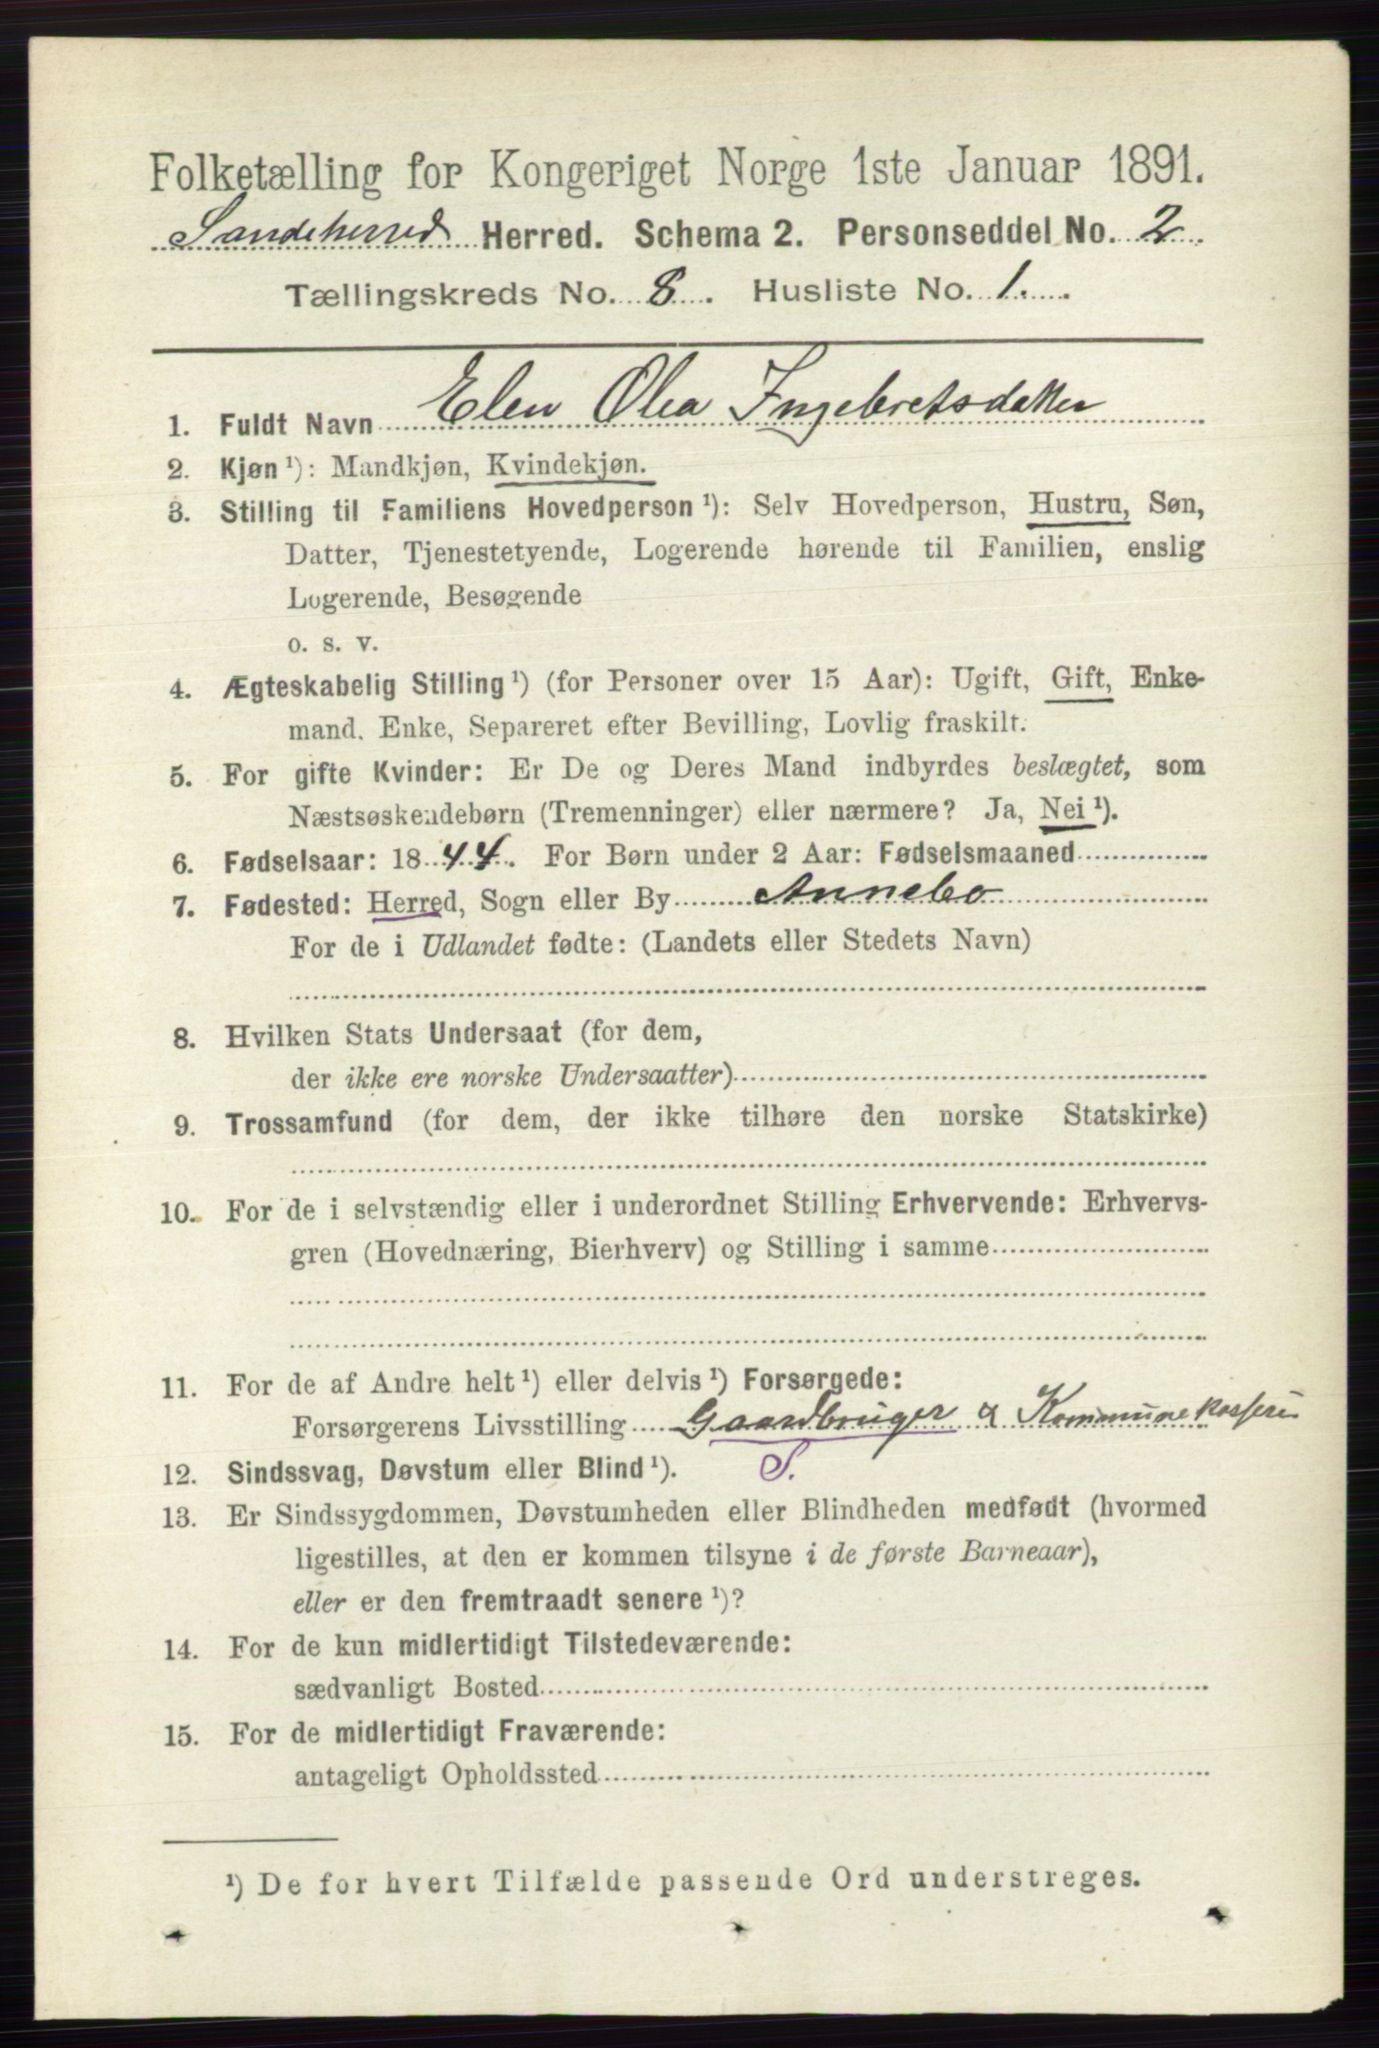 Folketælling for Kongeriget Norge 1ste Januar 1891.
Sandeherred Herred. Schema 2. Personseddel No. 2
Tællingskreds No. 8. Husliste No. 1.
1. Fuldt Navn Elen Olea Ingebretsdatter
2. Kjøn ¹): Mandkjøn, Kvindekjøn.
3. Stilling til Familiens Hovedperson ¹): Selv Hovedperson, Hustru, Søn,
Datter, Tjenestetyende, Logerende hørende til Familien, enslig
Logerende, Besøgende
o. s. v.
4. Ægteskabelig Stilling ¹) (for Personer over 15 Aar): Ugift, Gift, Enke-
mand, Enke, Separeret efter Bevilling, Lovlig fraskilt.
5. For gifte Kvinder: Er De og Deres Mand indbyrdes beslægtet, som
Næstsøskendebørn (Tremenninger) eller nærmere? Ja, Nei ¹).
6. Fødselsaar: 1844. For Børn under 2 Aar: Fødselsmaaned
7. Fødested: Herred, Sogn eller By Annebo
For de i Udlandet fødte: (Landets eller Stedets Navn)
8. Hvilken Stats Undersaat (for dem,
der ikke ere norske Undersaatter)
9. Trossamfund (for dem, der ikke tilhøre den norske Statskirke)
10. For de i selvstændig eller i underordnet Stilling Erhvervende: Erhvervs-
gren (Hovednæring, Bierhverv) og Stilling i samme
11. For de af Andre helt ¹) eller delvis ¹) Forsørgede:
Forsørgerens Livsstilling Gaardbruger & Kommunekasserer
12. Sindssvag, Døvstum eller Blind ¹). S.
13. Er Sindssygdommen, Døvstumheden eller Blindheden medfødt (hvormed
ligestilles, at den er kommen tilsyne i de første Barneaar),
eller er den fremtraadt senere ¹)?
14. For de kun midlertidigt Tilstedeværende:
sædvanligt Bosted
15. For de midlertidigt Fraværende:
antageligt Opholdssted
¹) De for hvert Tilfælde passende Ord understreges.